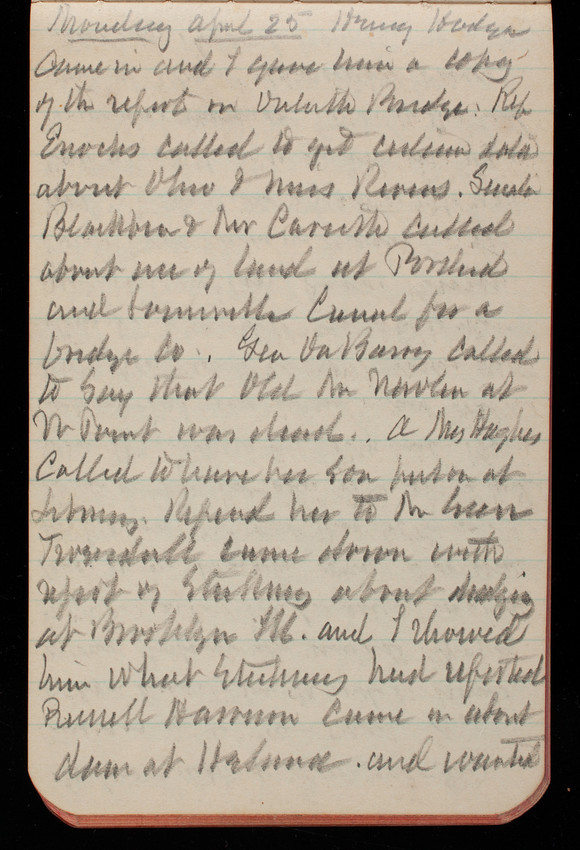 Monday April 25 Henry Hodges
Came in and I gave him a copy
of the report on Duluth Bridge. Rep
Enochs called to get certain data
about Ohio & Miss Rivers. Senator
Blackburn & Mr Caruth called
about use of land at Portland
and Louisville Canal for a
bridge Co. Gen Van called
to say that Old Mr at
W Point was dead. A Mrs Hughes
Called to have her son put on at
Library. Referred her to Mr Green
came down with
report of Stickney about dredging
at Brooklyn Ill. and I showed
him what Stickney had reported
Russell Harrison came in about
dam at Helena. and wanted